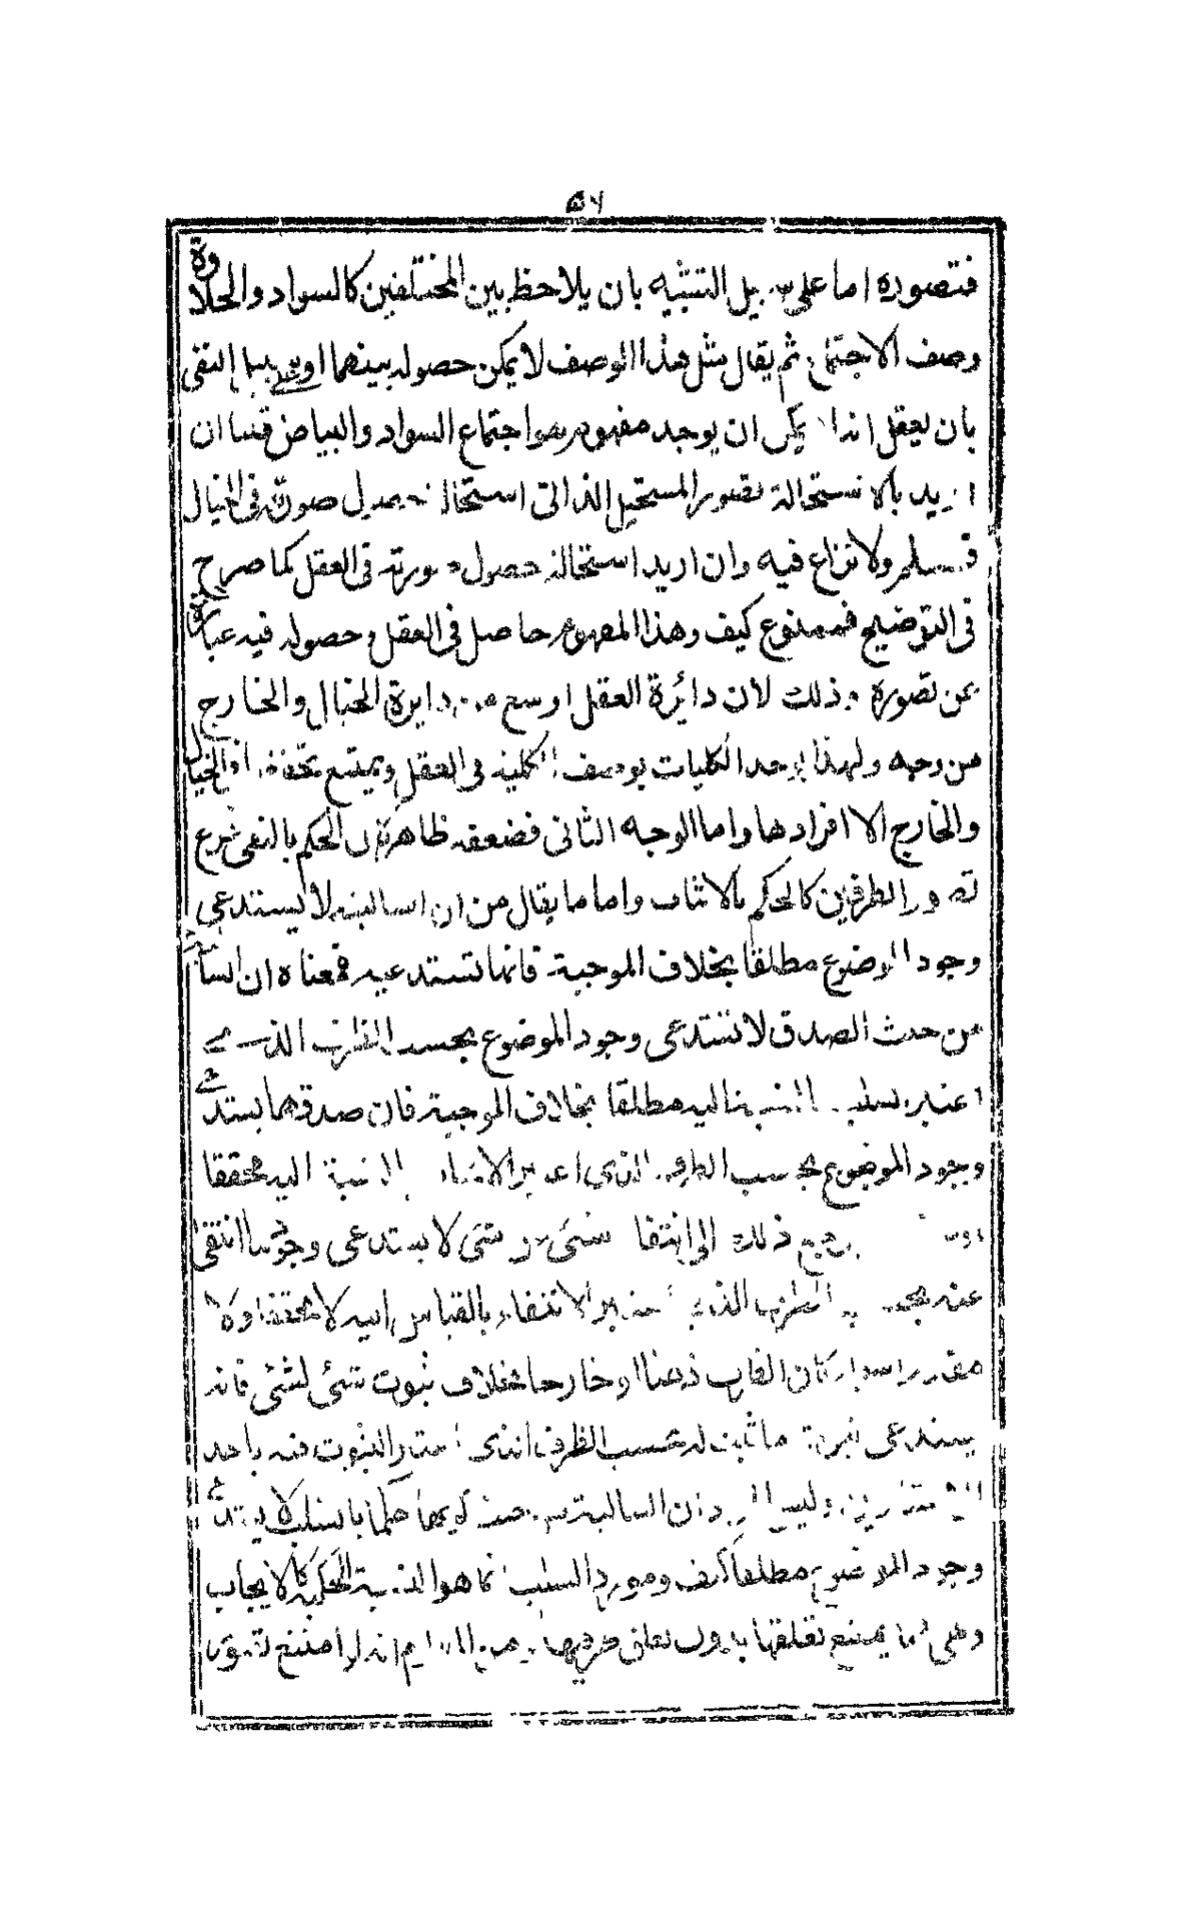 ٥٦
فتصوره اما على سبيل التشبيه بان يلاحظ بين المختلفين كالسواد والحلاوة
وصف الاجتماع ثم يقال مثل هذا الوصف لا يمكن حصوله بينهما او على سبيل النفى
بان يعقل انه لا يمكن ان يوجد مفهوم هو اجتماع السواد والبياض قلنا ان
اريد بالاستحالة تصور المستحيل الذاتى استحالة حصول صورته فى الخيال
فمسلم ولا نزاع فيه وان اريد استحالة حصول صورته فى العقل كما صرح
فى التوضيح فممنوع كيف وهذا المفهوم حاصل فى العقل وحصوله فيه عبارة
عن تصوره وذلك لان دائرة العقل اوسع من دايرة الخيال والخارج
من وجه ولهذا يوجد الكليات بوصف الكلية فى العقل ويمتنع تحققها فى الخيال
والخارج الا افرادها واما الوجه الثانى فضعفه ظاهر لان الحكم بالنفى فرع
تصور الطرفين كالحكم بالاثبات واما ما يقال من ان السالبة لا يستدعى
وجود الموضوع مطلقا بخلاف الموجبة فانها تستدعيه فمعناه ان السالبة
من حيث الصدق لا تستدعى وجود الموضوع بحسب الظرف الذى
اعتبر سلب اليه مطلقا بخلاف الموجبة فان صدقها يستدعى
وجود الموضوع بحسب الظرف الذى اعتبر اليه محققا
ذلك الى انتفا شئ عن شئ لا يستدعى وجود ما انتفى
عنه بحسب الظرف الذى اعتبر الانتفاء بالقياس اليه لا محققا ولا
مقدرا سواء كان الظرف ذهنا او خارجا بخلاف ثبوت شئ لشئ فانه
يستدعى ما ثبت له بحسب الظرف الذى اعتبر الثبوت فيه باحد
وليس ان السالبة حكما بالسلب لا يستدعى
وجود الموضوع مطلقا كيف ومورد السلب انما هو النسبة الحكمية كالايجاب
وهى مما يمتنع تعلقها بدون تعلق طرفيها انه لو امتنع تصور